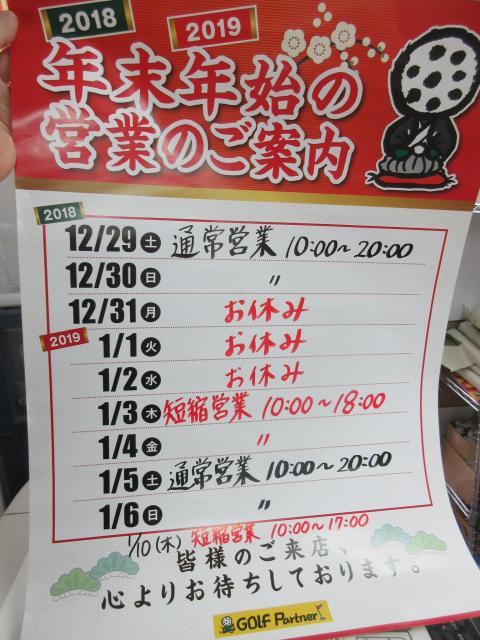 2018
2019
年末年始の
営業のご案内
2018
12/29 土 通常営業 10:00~20:00
12/30 日 〃
12/31 月 お休み
2019
1/1 火 お休み
1/2 水 お休み
1/3 木 短縮営業 10:00~18:00
1/4 金 〃
1/5 土 通常営業 10:00~20:00
1/6 日 〃
1/10(木) 短縮営業 10:00~17:00
皆様のご来店、
心よりお待ちしております。
GOLF Partner